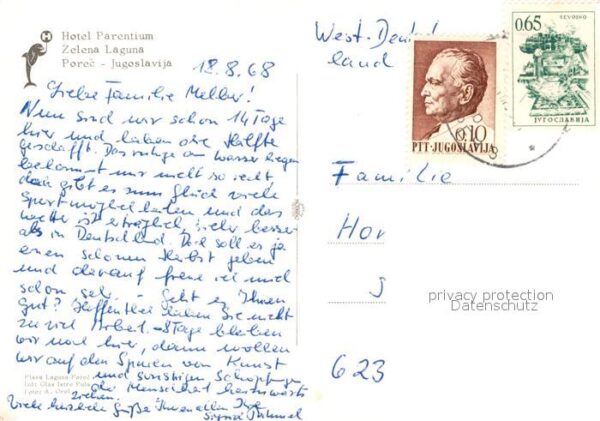 Hotel Parentium
Zelena Laguna
Poreč - Jugoslavija
18.8.68
Liebe Familie Melber!
Nun sind wir schon 14 Tage
hier und haben die Hälfte
geschafft. Das ruhige am Wasser liegen
bekommt mir nicht so recht
doch gibt es zum Glück viele
Sportmöglichkeiten und das
Wetter ist erträglich, sicher besser
als in Deutschland. Doch soll es ja
einen schönen Herbst geben
und darauf freue ich mich
schon sehr. - Geht es Ihnen
gut? Hoffentlich haben Sie nicht
zu viel Arbeit. 8 Tage bleiben
wir noch hier, dann wollen
wir auf den Spuren von Kunst
und sonstigen Schöpfungen
der Menschheit heimwärts
ziehen.
Viele herzliche Grüße Ihnen allen
Sigrid
Plava Laguna Poreč
Izd: Glas Istre Pula
Foto: A.
West-Deutsch
land
0.65
JUGOSLAVIJA
0.10
PTT-JUGOSLAVIJA
Familie
Hor
g
623
privacy protection
Datenschutz